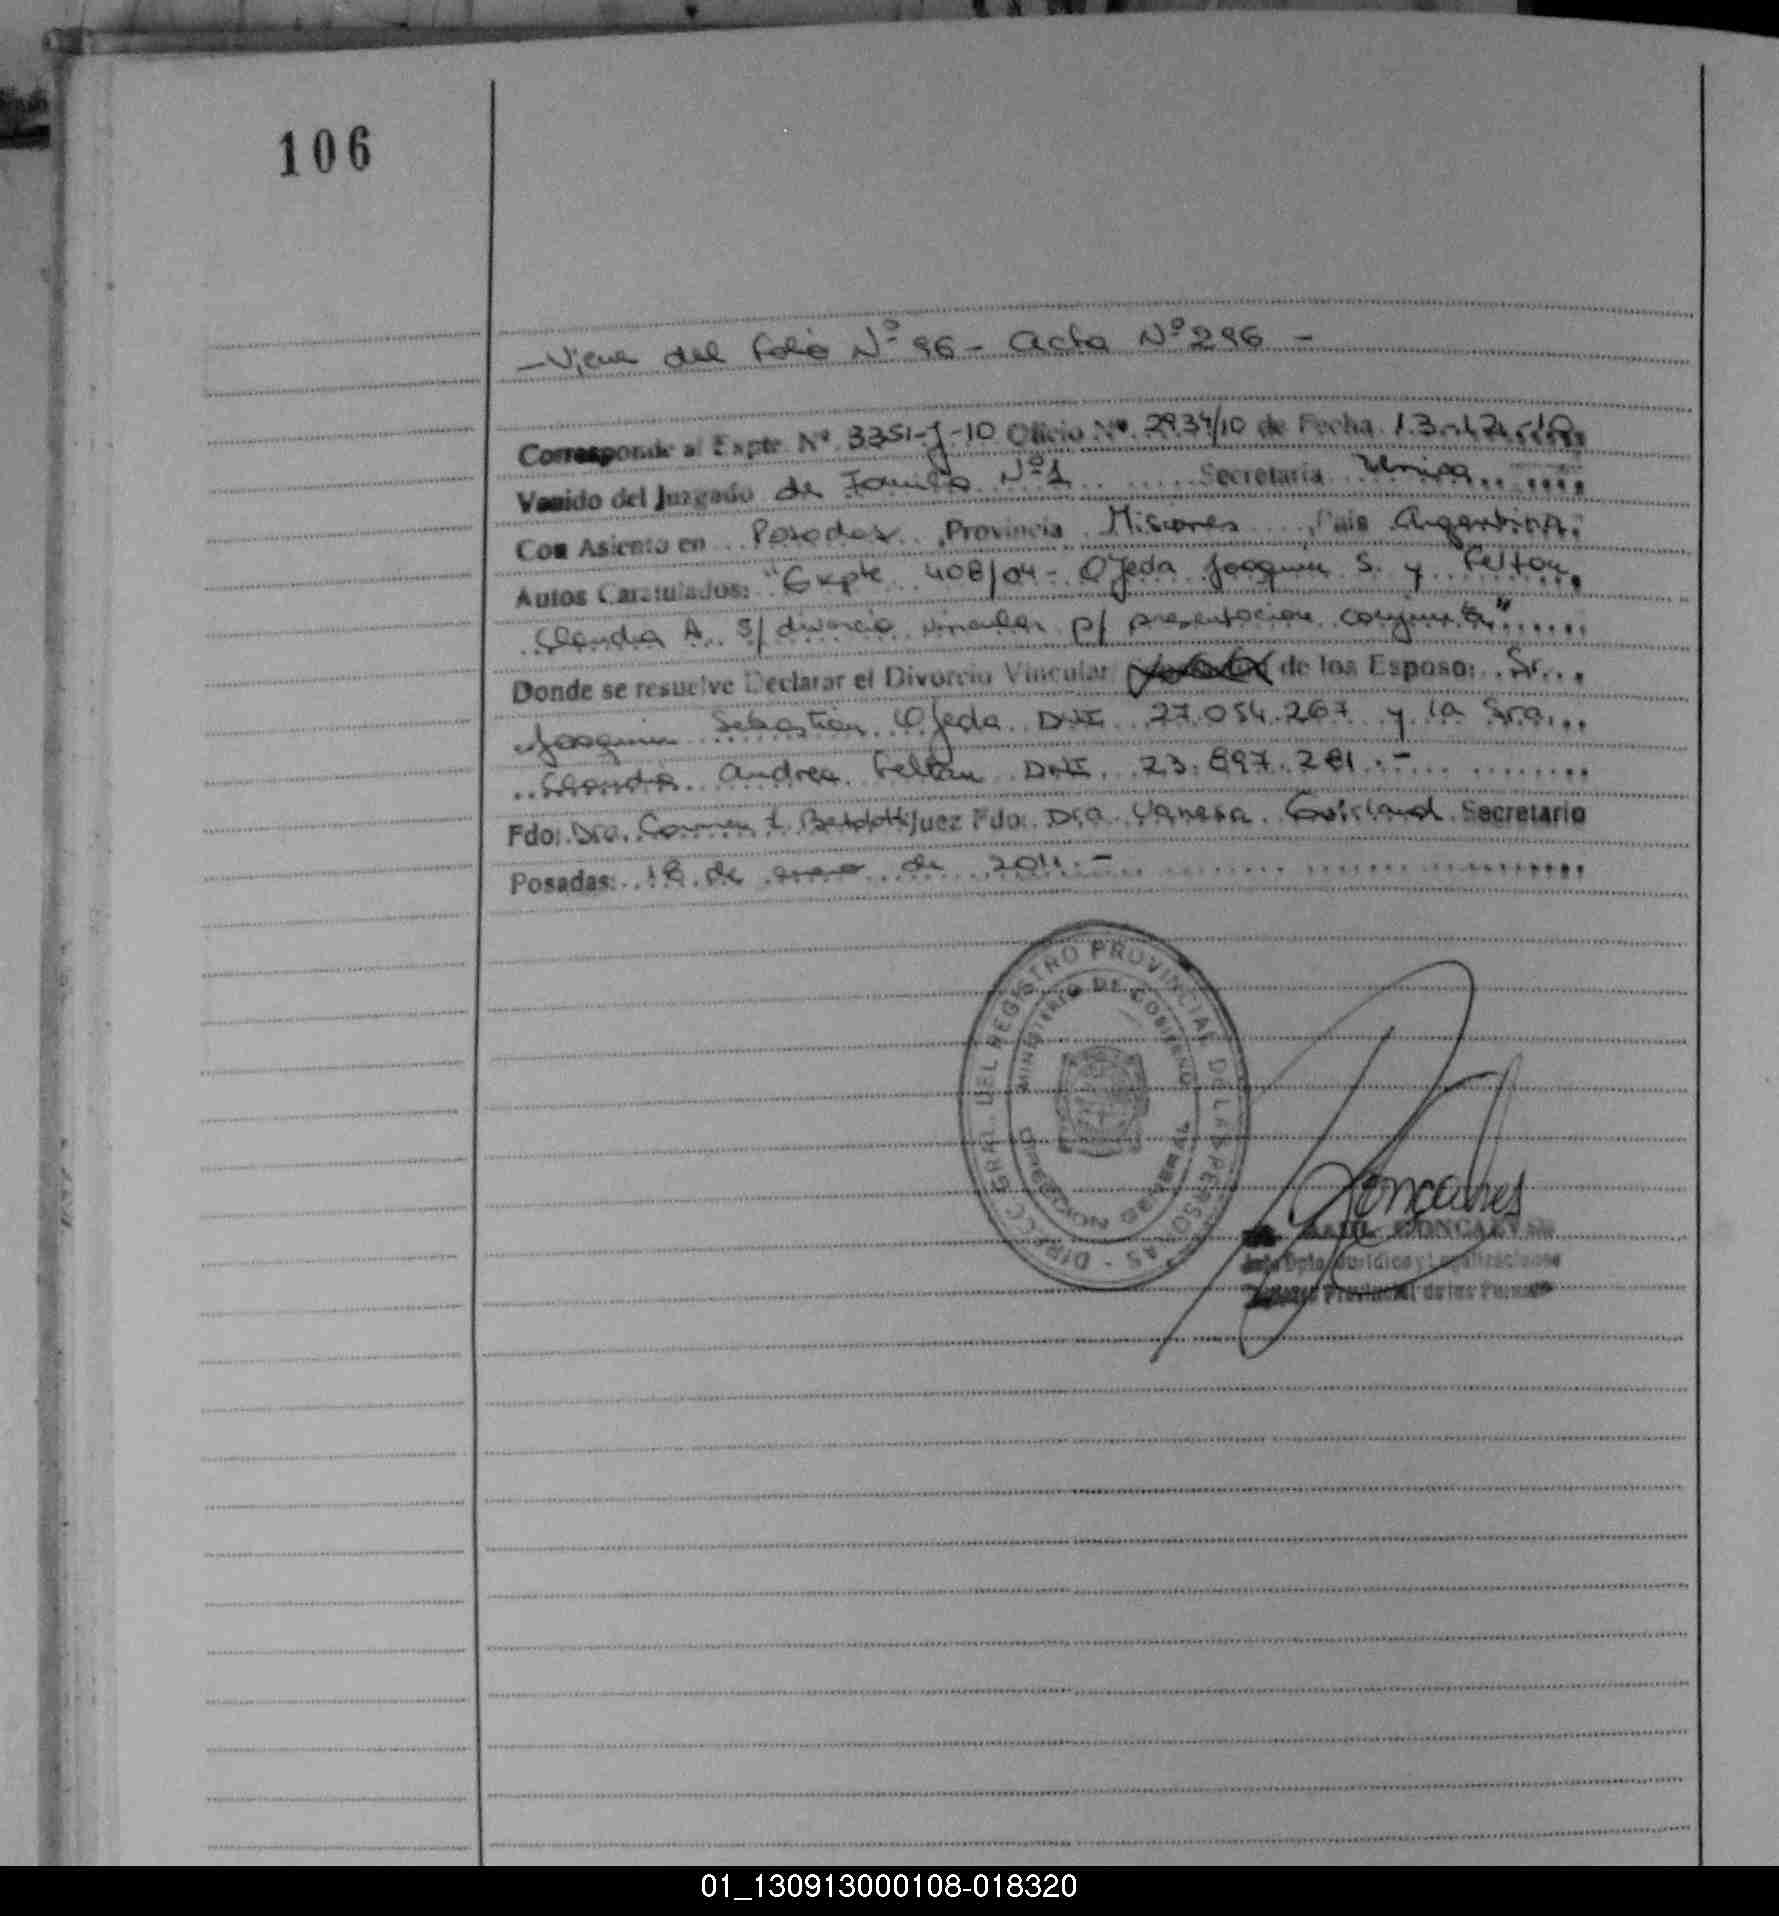 106
- Viene del folio Nº 96 - Acta Nº 296 -
Corresponde al Expte. Nº 3351-J-10 Oficio Nº 2934/10 de Fecha 13-12-10
Venido del Juzgado de Familia Nº 1 Secretaría Unica
Con Asiento en Posadas Provincia Misiones País Argentina
Autos Caratulados: "Expte 408/04 - Ojeda Joaquin S. y Feltan
Claudia A. S/ divorcio vincular p/ presentacion conjunta"
Donde se resuelve Declarar el Divorcio Vincular de los Esposo: Sr.
Joaquin Sebastián Ojeda DNI 27.054.267 y la Sra.
Claudia Andrea Feltan DNI 23.897.281.-
Fdo: Dra. Carmen Juez Fdo: Dra. Vanesa Secretario
Posadas: 18 de enero de 2011.-
DIRECC. GRAL. DEL REGISTRO PROVINCIAL DE LAS PERSONAS
MINISTERIO DE GOBIERNO
Goncalves
RAUL GONCALVES
Jefe Dpto. Jurídico y Legalizaciones
Registro Provincial de las Personas
01_130913000108-018320